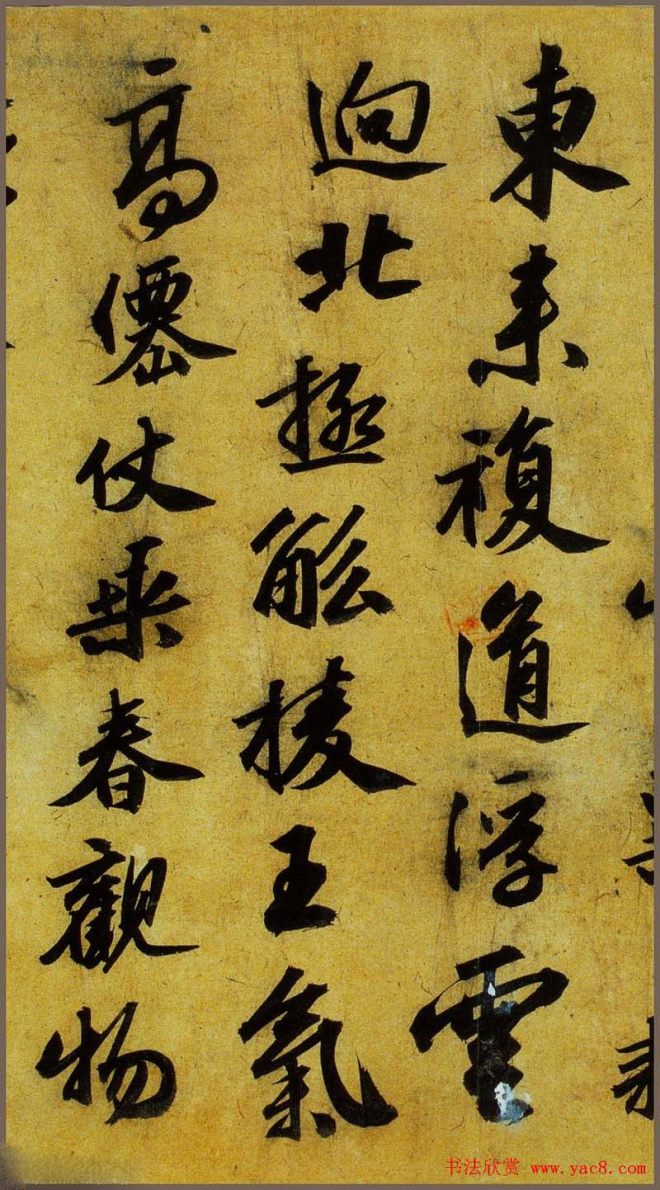 東来複道浮雲
逈北極觚棱王氣
高僊仗乗春觀物
书法欣赏 www.yac8.com